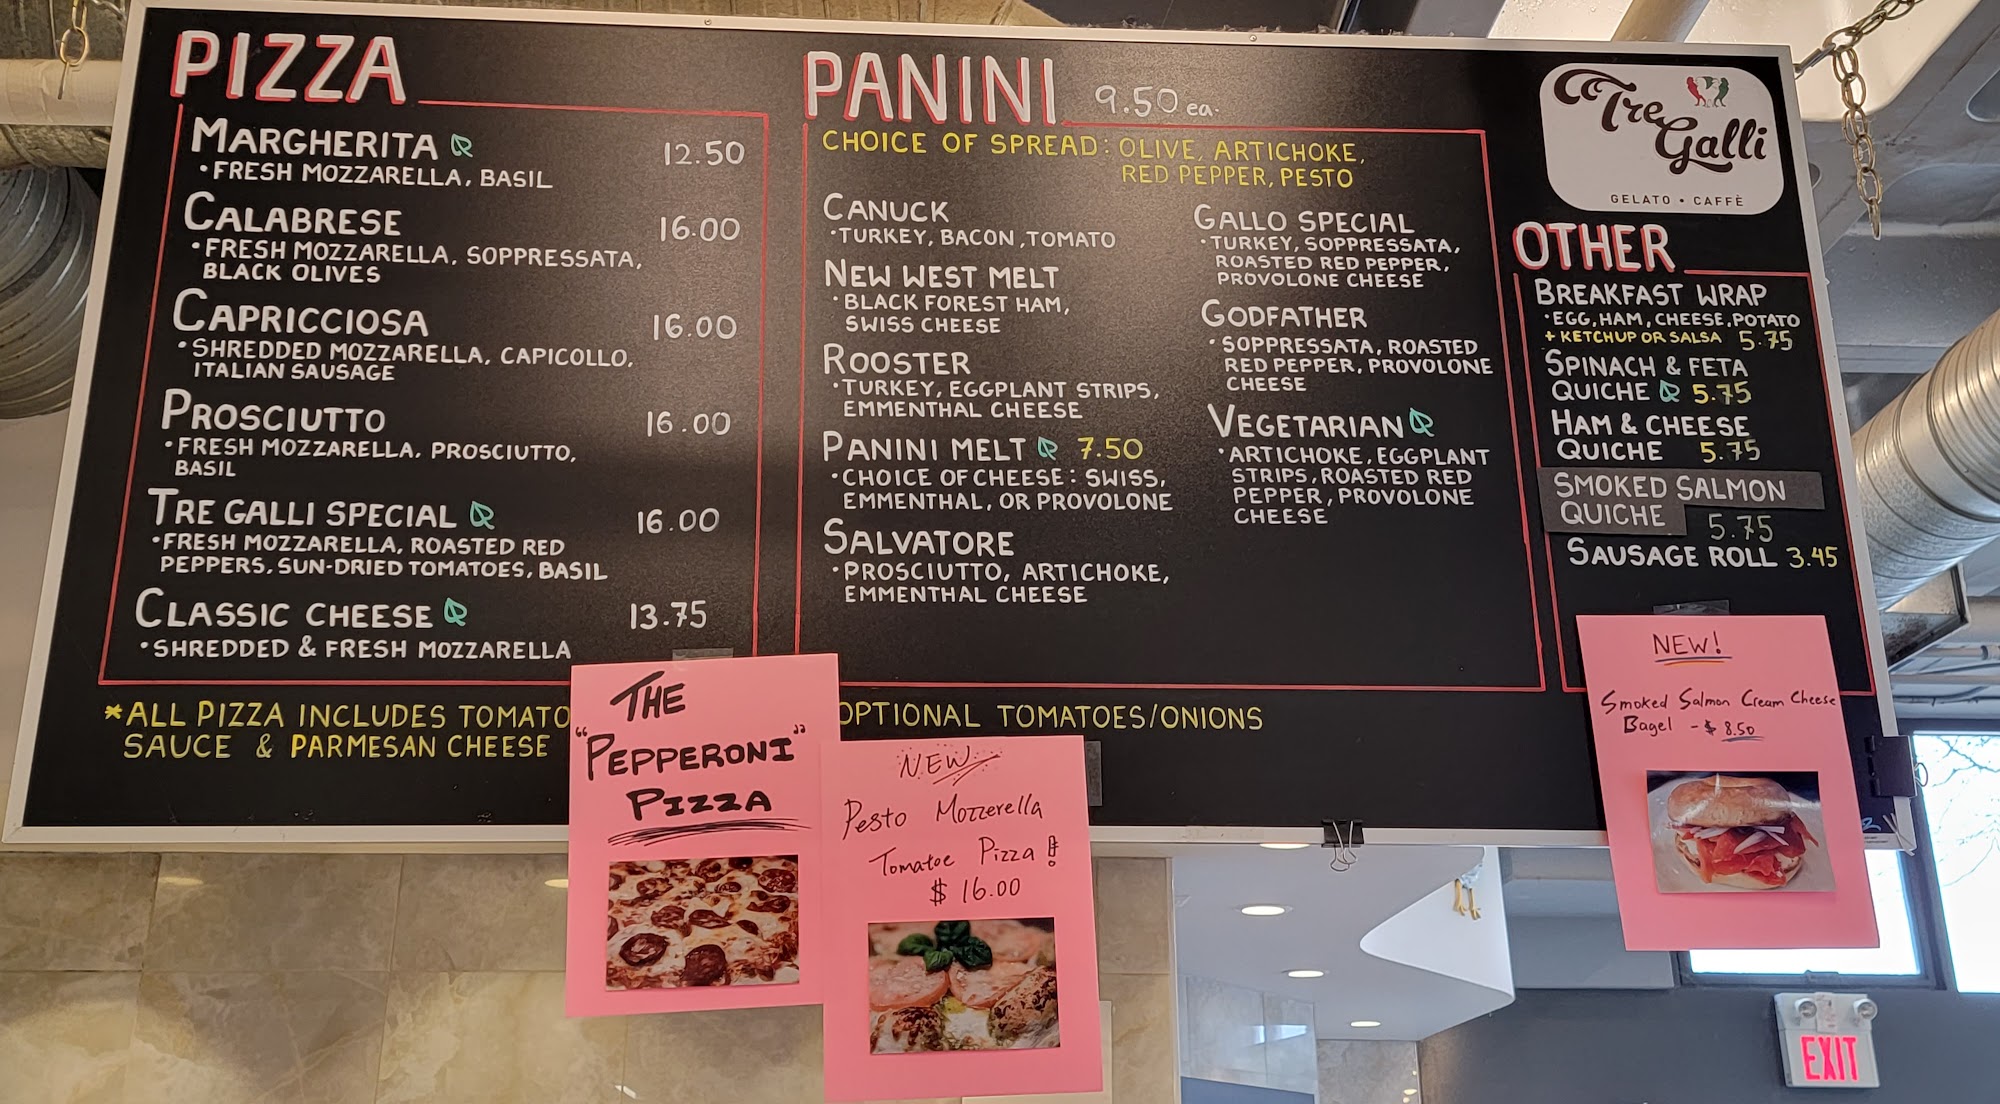 PIZZA
MARGHERITA 12.50
• FRESH MOZZARELLA, BASIL
CALABRESE 16.00
• FRESH MOZZARELLA, SOPPRESSATA,
BLACK OLIVES
CAPRICCIOSA 16.00
• SHREDDED MOZZARELLA, CAPICOLLO,
ITALIAN SAUSAGE
PROSCIUTTO 16.00
• FRESH MOZZARELLA, PROSCIUTTO,
BASIL
TRE GALLI SPECIAL 16.00
• FRESH MOZZARELLA, ROASTED RED
PEPPERS, SUN-DRIED TOMATOES, BASIL
CLASSIC CHEESE 13.75
• SHREDDED & FRESH MOZZARELLA
*ALL PIZZA INCLUDES TOMATO
SAUCE & PARMESAN CHEESE
PANINI 9.50 ea.
CHOICE OF SPREAD: OLIVE, ARTICHOKE,
RED PEPPER, PESTO
CANUCK
• TURKEY, BACON, TOMATO
NEW WEST MELT
• BLACK FOREST HAM,
SWISS CHEESE
ROOSTER
• TURKEY, EGGPLANT STRIPS,
EMMENTHAL CHEESE
PANINI MELT 7.50
• CHOICE OF CHEESE: SWISS,
EMMENTHAL, OR PROVOLONE
SALVATORE
• PROSCIUTTO, ARTICHOKE,
EMMENTHAL CHEESE
GALLO SPECIAL
• TURKEY, SOPPRESSATA,
ROASTED RED PEPPER,
PROVOLONE CHEESE
GODFATHER
• SOPPRESSATA, ROASTED
RED PEPPER, PROVOLONE
CHEESE
VEGETARIAN
• ARTICHOKE, EGGPLANT
STRIPS, ROASTED RED
PEPPER, PROVOLONE
CHEESE
OPTIONAL TOMATOES/ONIONS
Tre
Galli
GELATO • CAFFÈ
OTHER
BREAKFAST WRAP
• EGG, HAM, CHEESE, POTATO
+ KETCHUP OR SALSA 5.75
SPINACH & FETA
QUICHE 5.75
HAM & CHEESE
QUICHE 5.75
SMOKED SALMON
QUICHE 5.75
SAUSAGE ROLL 3.45
THE
"PEPPERONI"
PIZZA
NEW
Pesto Mozzerella
Tomatoe Pizza!
$ 16.00
NEW!
Smoked Salmon Cream Cheese
Bagel - $ 8.50
EXIT